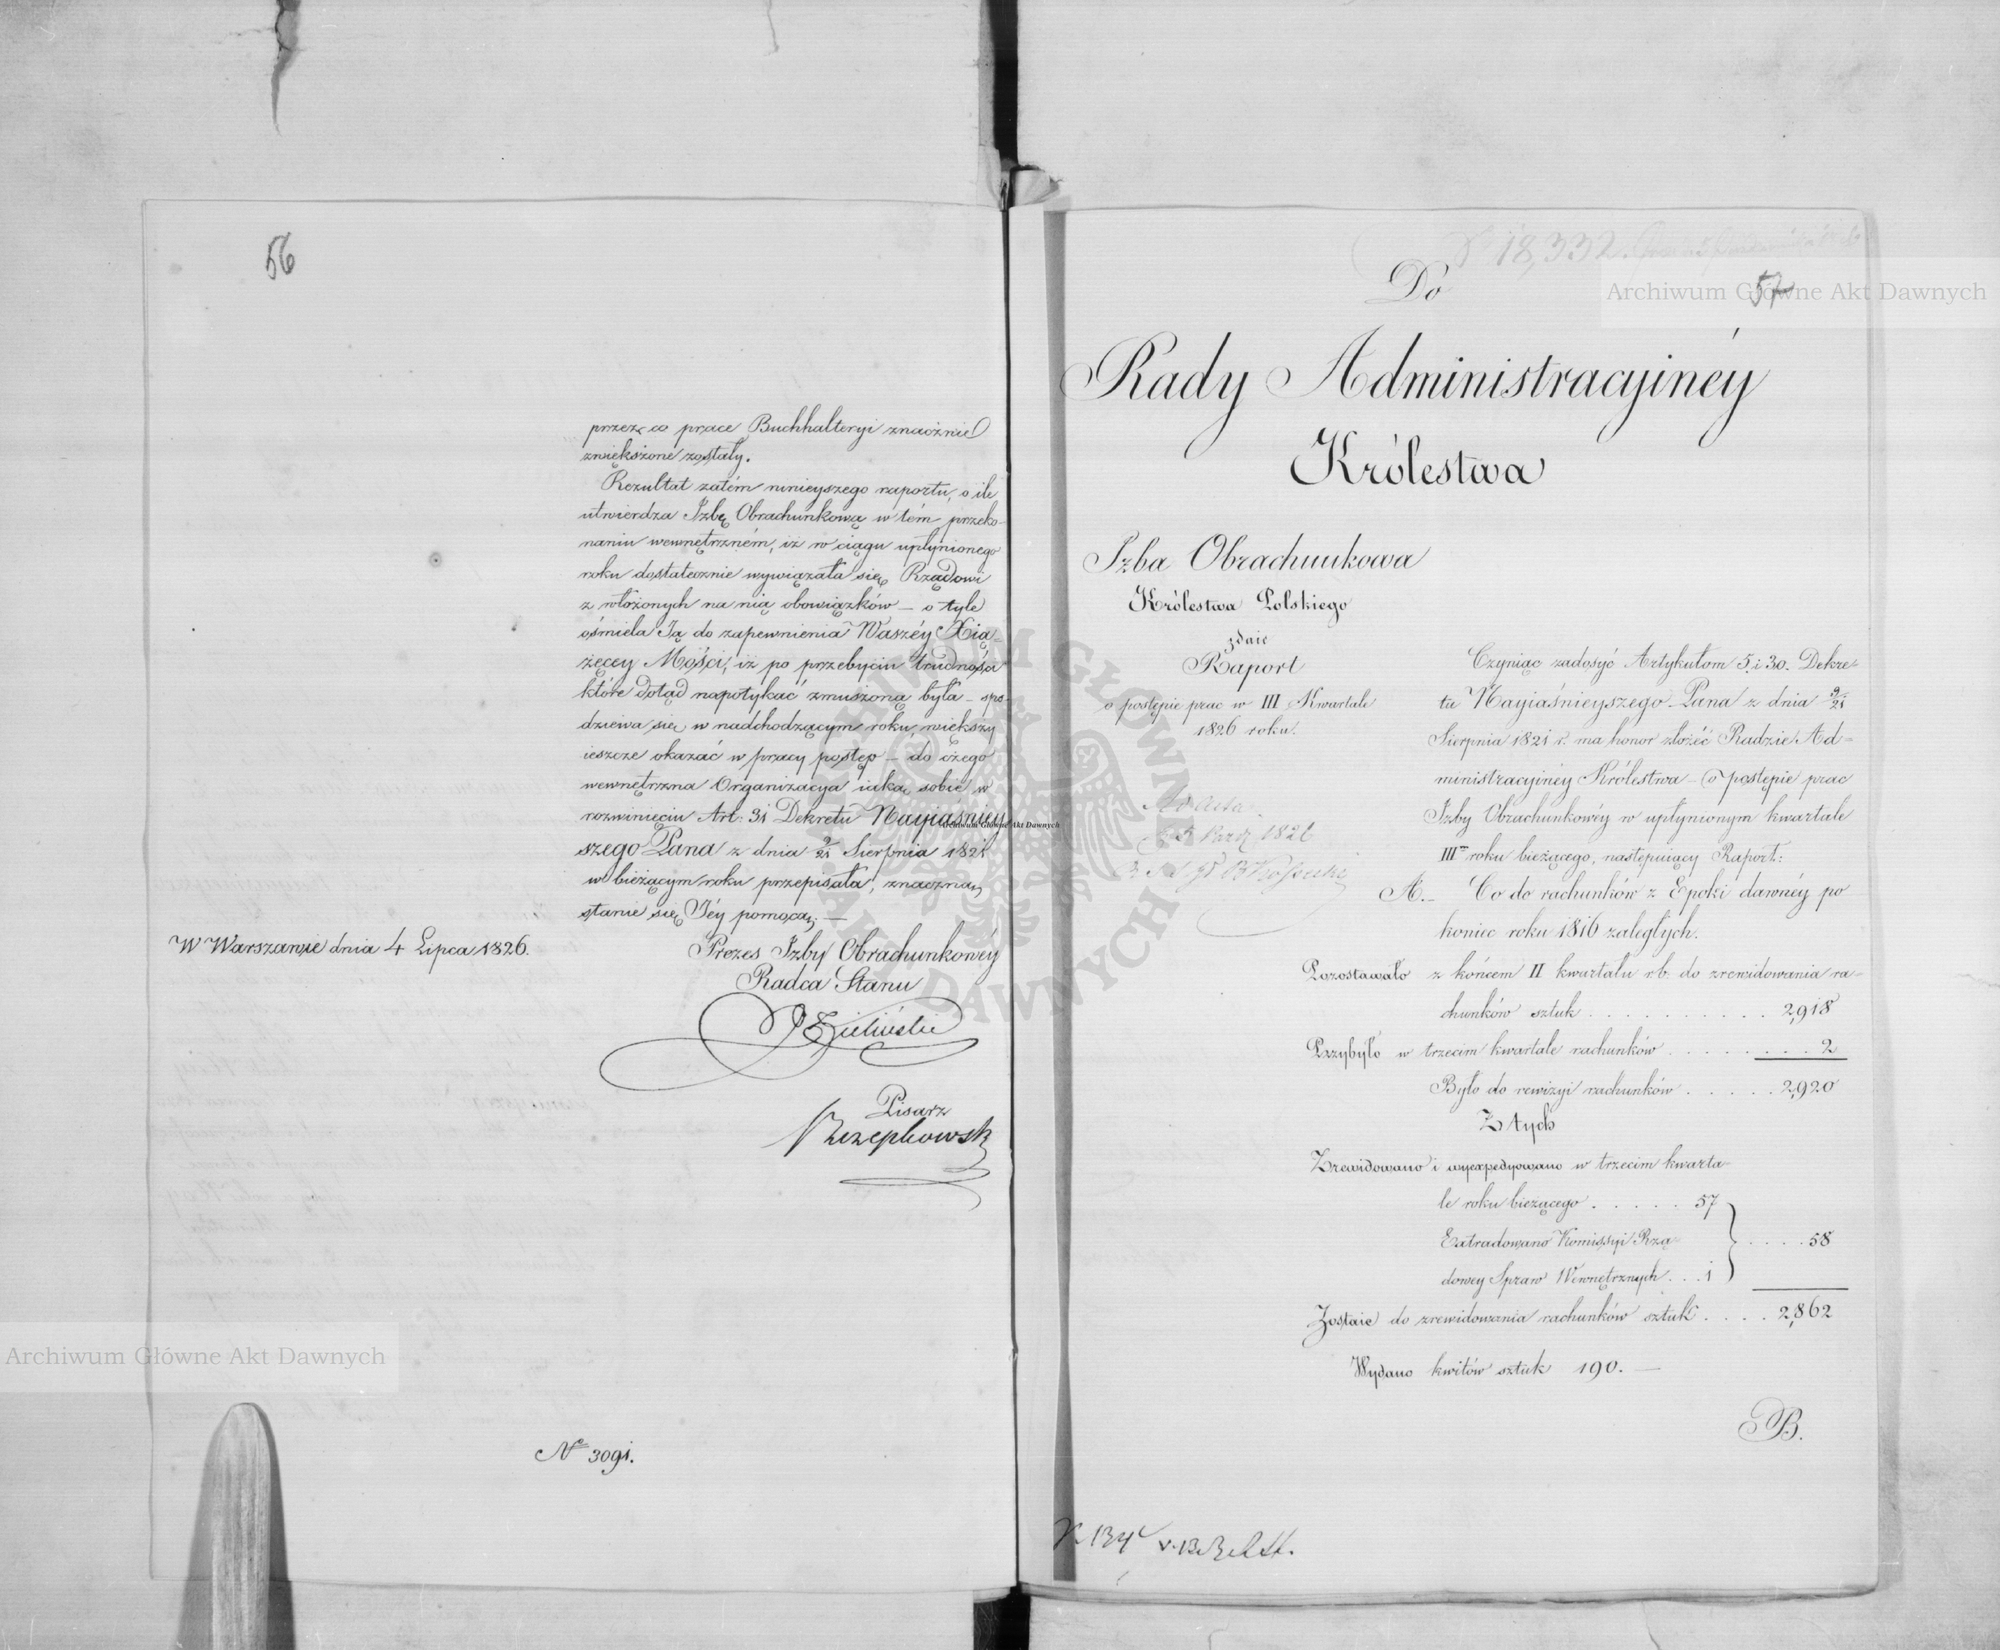 56
przez co prace Buchhalteryi znacznie
zwiększone zostały.
Rezultat zatém ninieyszego raportu, o ile
utwierdza Izbę Obrachunkową w tém przeko-
naniu wewnętrzném, iż w ciągu upłynionego
roku dostatecznie wywiązała się Rządowi
z włożonych na nią obowiązków – o tyle
ośmiela Ją do zapewnienia Waszéy Xią-
żęcey Mości, iż po przebyciu trudności
które dotąd napotykać zmuszoną była – spo-
dziewa się w nadchodzącym roku większy
ieszcze okazać w pracy postęp – do czego
wewnętrzna Organizacya iaką sobie w
rozwinięciu Art: 31 Dekretu Nayiaśniey
szego Pana z dnia 9/21 Sierpnia 1821
w bieżącym roku przepisała, znaczną
stanie się Jéy pomocą; –
W Warszawie dnia 4 Lipca 1826.
Prezes Izby Obrachunkowéy
Radca Stanu
Zieliński
Pisarz
Rzezpkowski
No 3091.
No 18,332.
57
Do
Rady Administracyinéy
Królestwa
Izba Obrachunkowa
Królestwa Polskiego
zdaie
Raport
o postępie prac w III Kwartale
1826 roku.
Ad acta
Czyniąc zadosyć Artykułom 5 i 30. Dekre-
tu Nayiaśnieyszego Pana z dnia 9/21
Sierpnia 1821 r. ma honor złożyć Radzie Ad-
ministracyinéy Królestwa – o postępie prac
Izby Obrachunkowéy w upłynionym kwartale
III roku bieżącego, następuiący Raport:
A. – Co do rachunków z Epoki dawnéy po
koniec roku 1816 zaległych.
Pozostawało z końcem II kwartału r.b. do zrewidowania ra-
chunków sztuk . . . . . . . . . . 2,918
Przybyło w trzecim kwartale rachunków . . . . . . . . 2
Było do rewizyi rachunków . . . . . 2,920
Z tych
Zrewidowano i wyexpedyowano w trzecim kwarta-
le roku bieżącego . . . . . . 57
Extradowano Komissyi Rzą-
dowey Spraw Wewnętrznych . . . 1
. . . . 58
Zostaie do zrewidowania rachunków sztuk . . . . 2,862
Wydano kwitów sztuk 190. –
B.
Archiwum Główne Akt Dawnych
Archiwum Główne Akt Dawnych
Archiwum Główne Akt Dawnych
ARCHIWUM GŁÓWNE AKT DAWNYCH